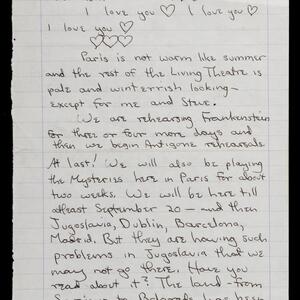 I love you ♡ I love you ♡
I love you ♡
♡♡♡
Paris is not warm like summer
and the rest of the Living Theatre is
pale and winterrish looking—
except for me and Steve.
We are rehearsing Frankenstein
for three or four more days and
then we begin Antigone rehearsals
At last! We will also be playing
the Mysteries here in Paris for about
two weeks. We will be here till
atleast September 20 — and then
Jugoslavia, Dublin, Barcelona,
Madrid. But they are having such
problems in Jugoslavia that we
may not go there. Have you
read about it? The land - from
to Belgrade has been